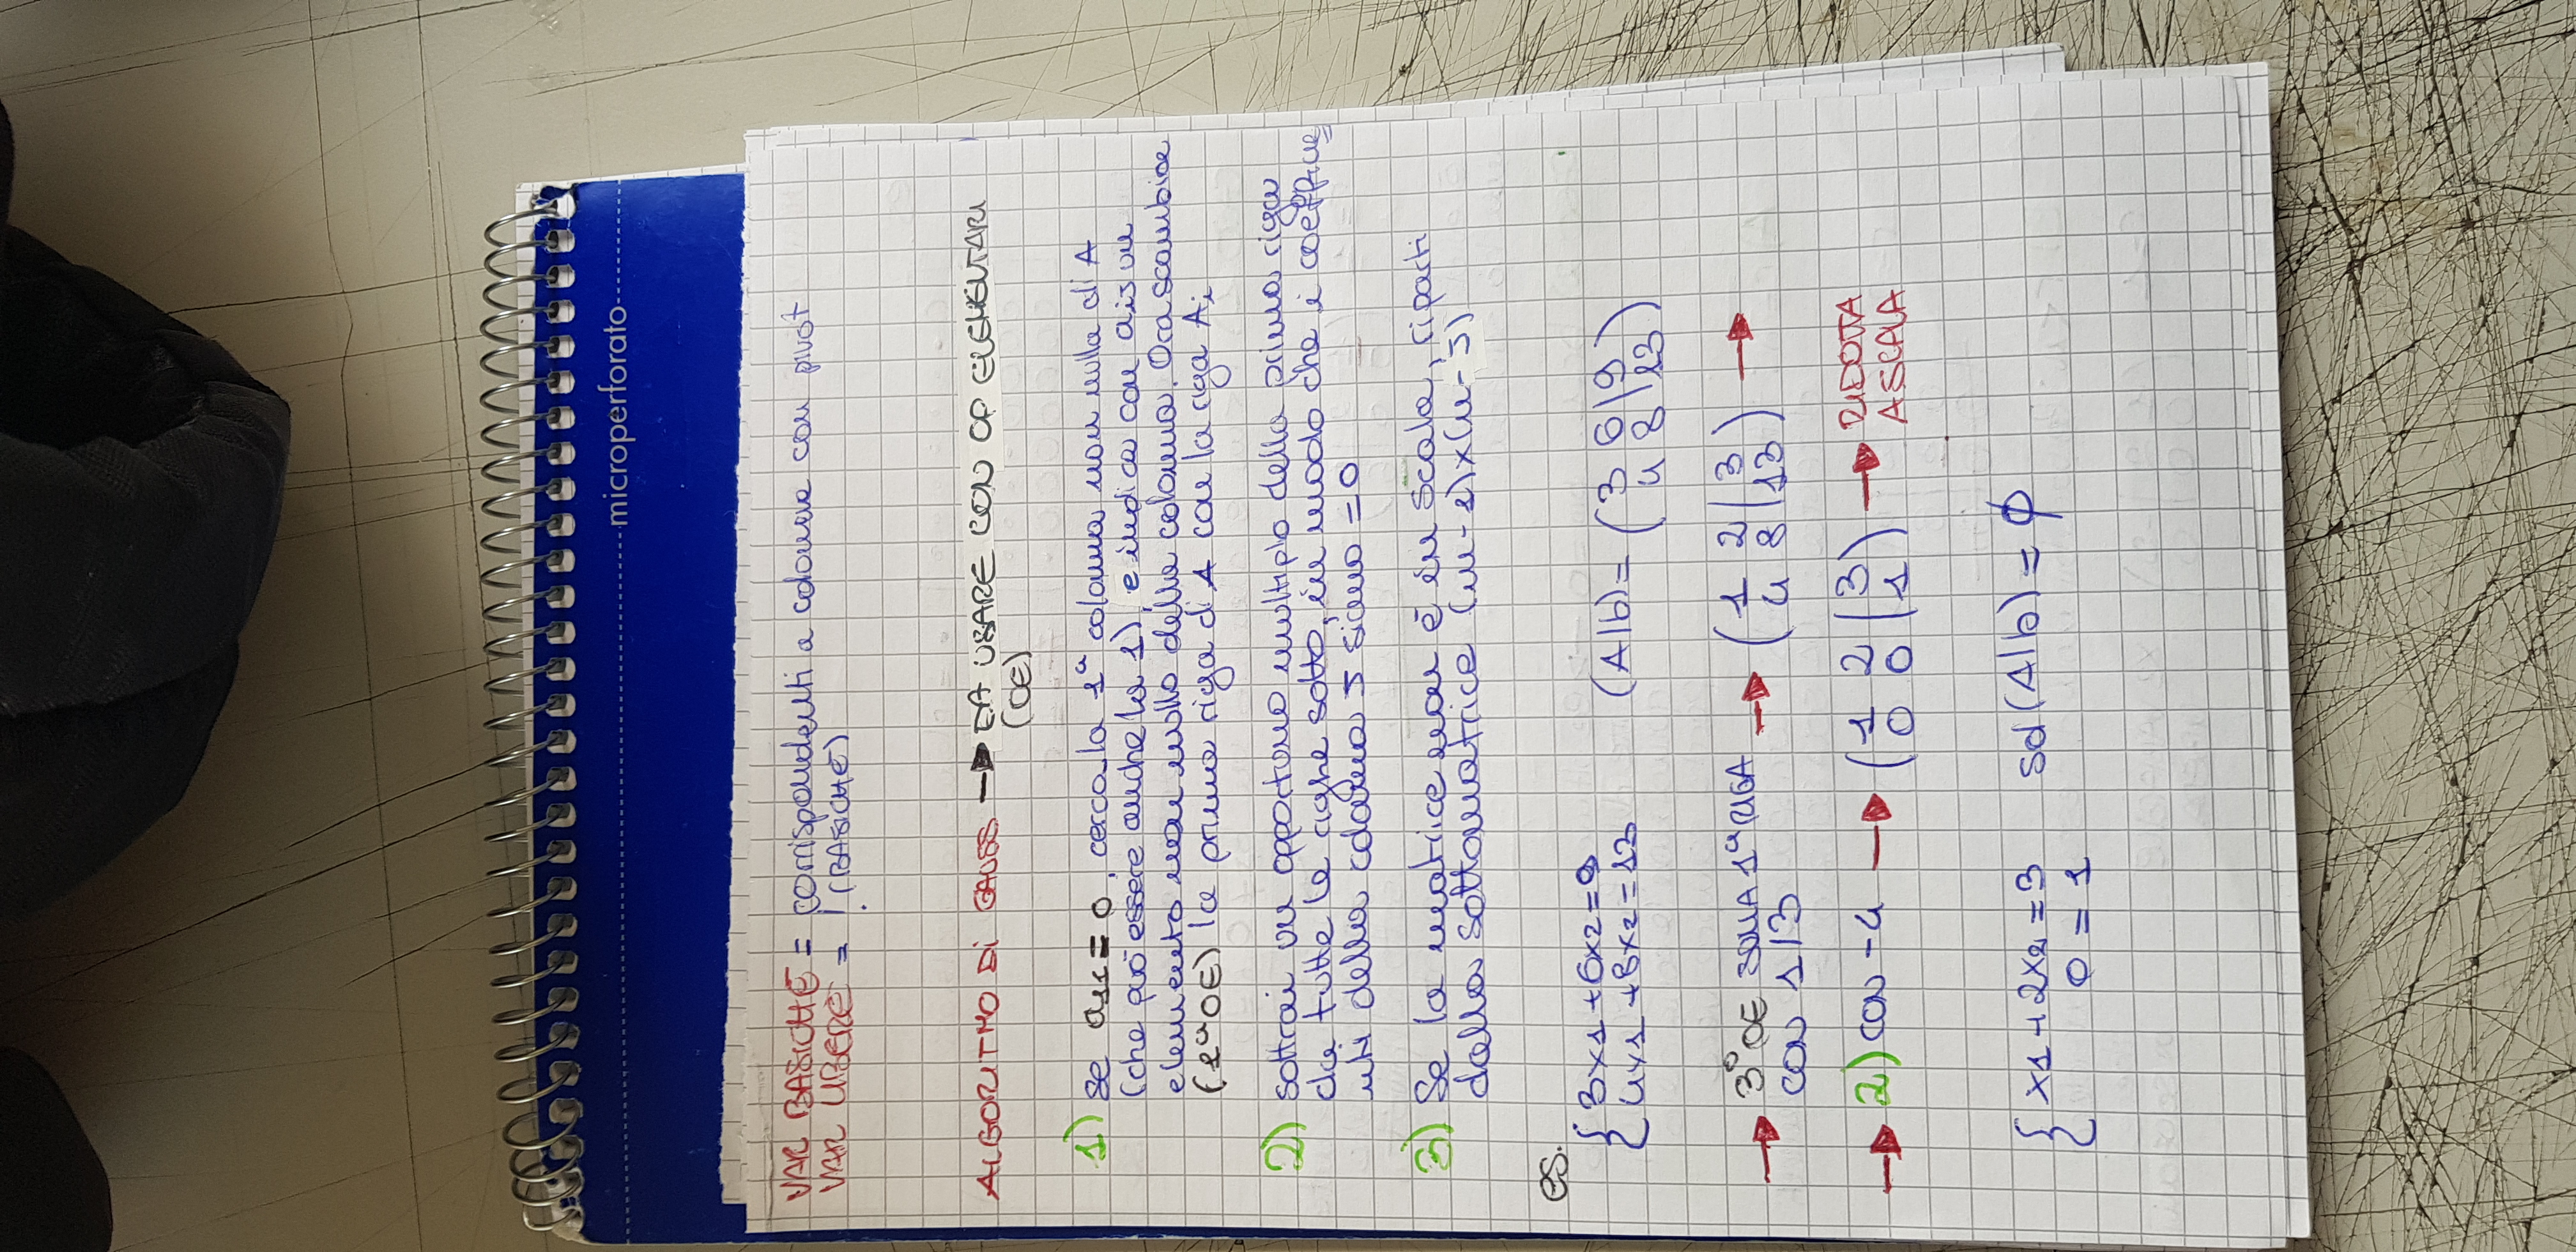 microperforato
VAR BASICHE = corrispondenti a colonne con pivot
VAR LIBERE = ! (BASICHE)
ALGORITMO DI GAUSS → DA USARE CON OP ELEMENTARI
(OE)
1) Se a11 = 0, cerca la 1ª colonna non nulla di A
(che può essere anche la 1), e indica con aij un
elemento non nullo della colonna. Ora scambia
(1ª OE) la prima riga di A con la riga Ai
2) sottrai un opportuno multiplo della prima riga
da tutte le righe sotto, in modo che i coefficie
nti della colonna J siano = 0
3) Se la matrice non è in scala, riparti
dalla sottomatrice (m-1)x(n-J)
es.
{ 3x1 + 6x2 = 9
4x1 + 8x2 = 13
(A|b) = ( 3 6 | 9
4 8 | 13 )
→ 3° OE SULLA 1ª RIGA → ( 1 2 | 3 →
con 1/3 4 8 | 13 )
→ 2) con -4 → ( 1 2 | 3 → RIDOTTA
0 0 | 1 ) A SCALA
{ x1 + 2x2 = 3 Sol (A|b) = ∅
0 = 1